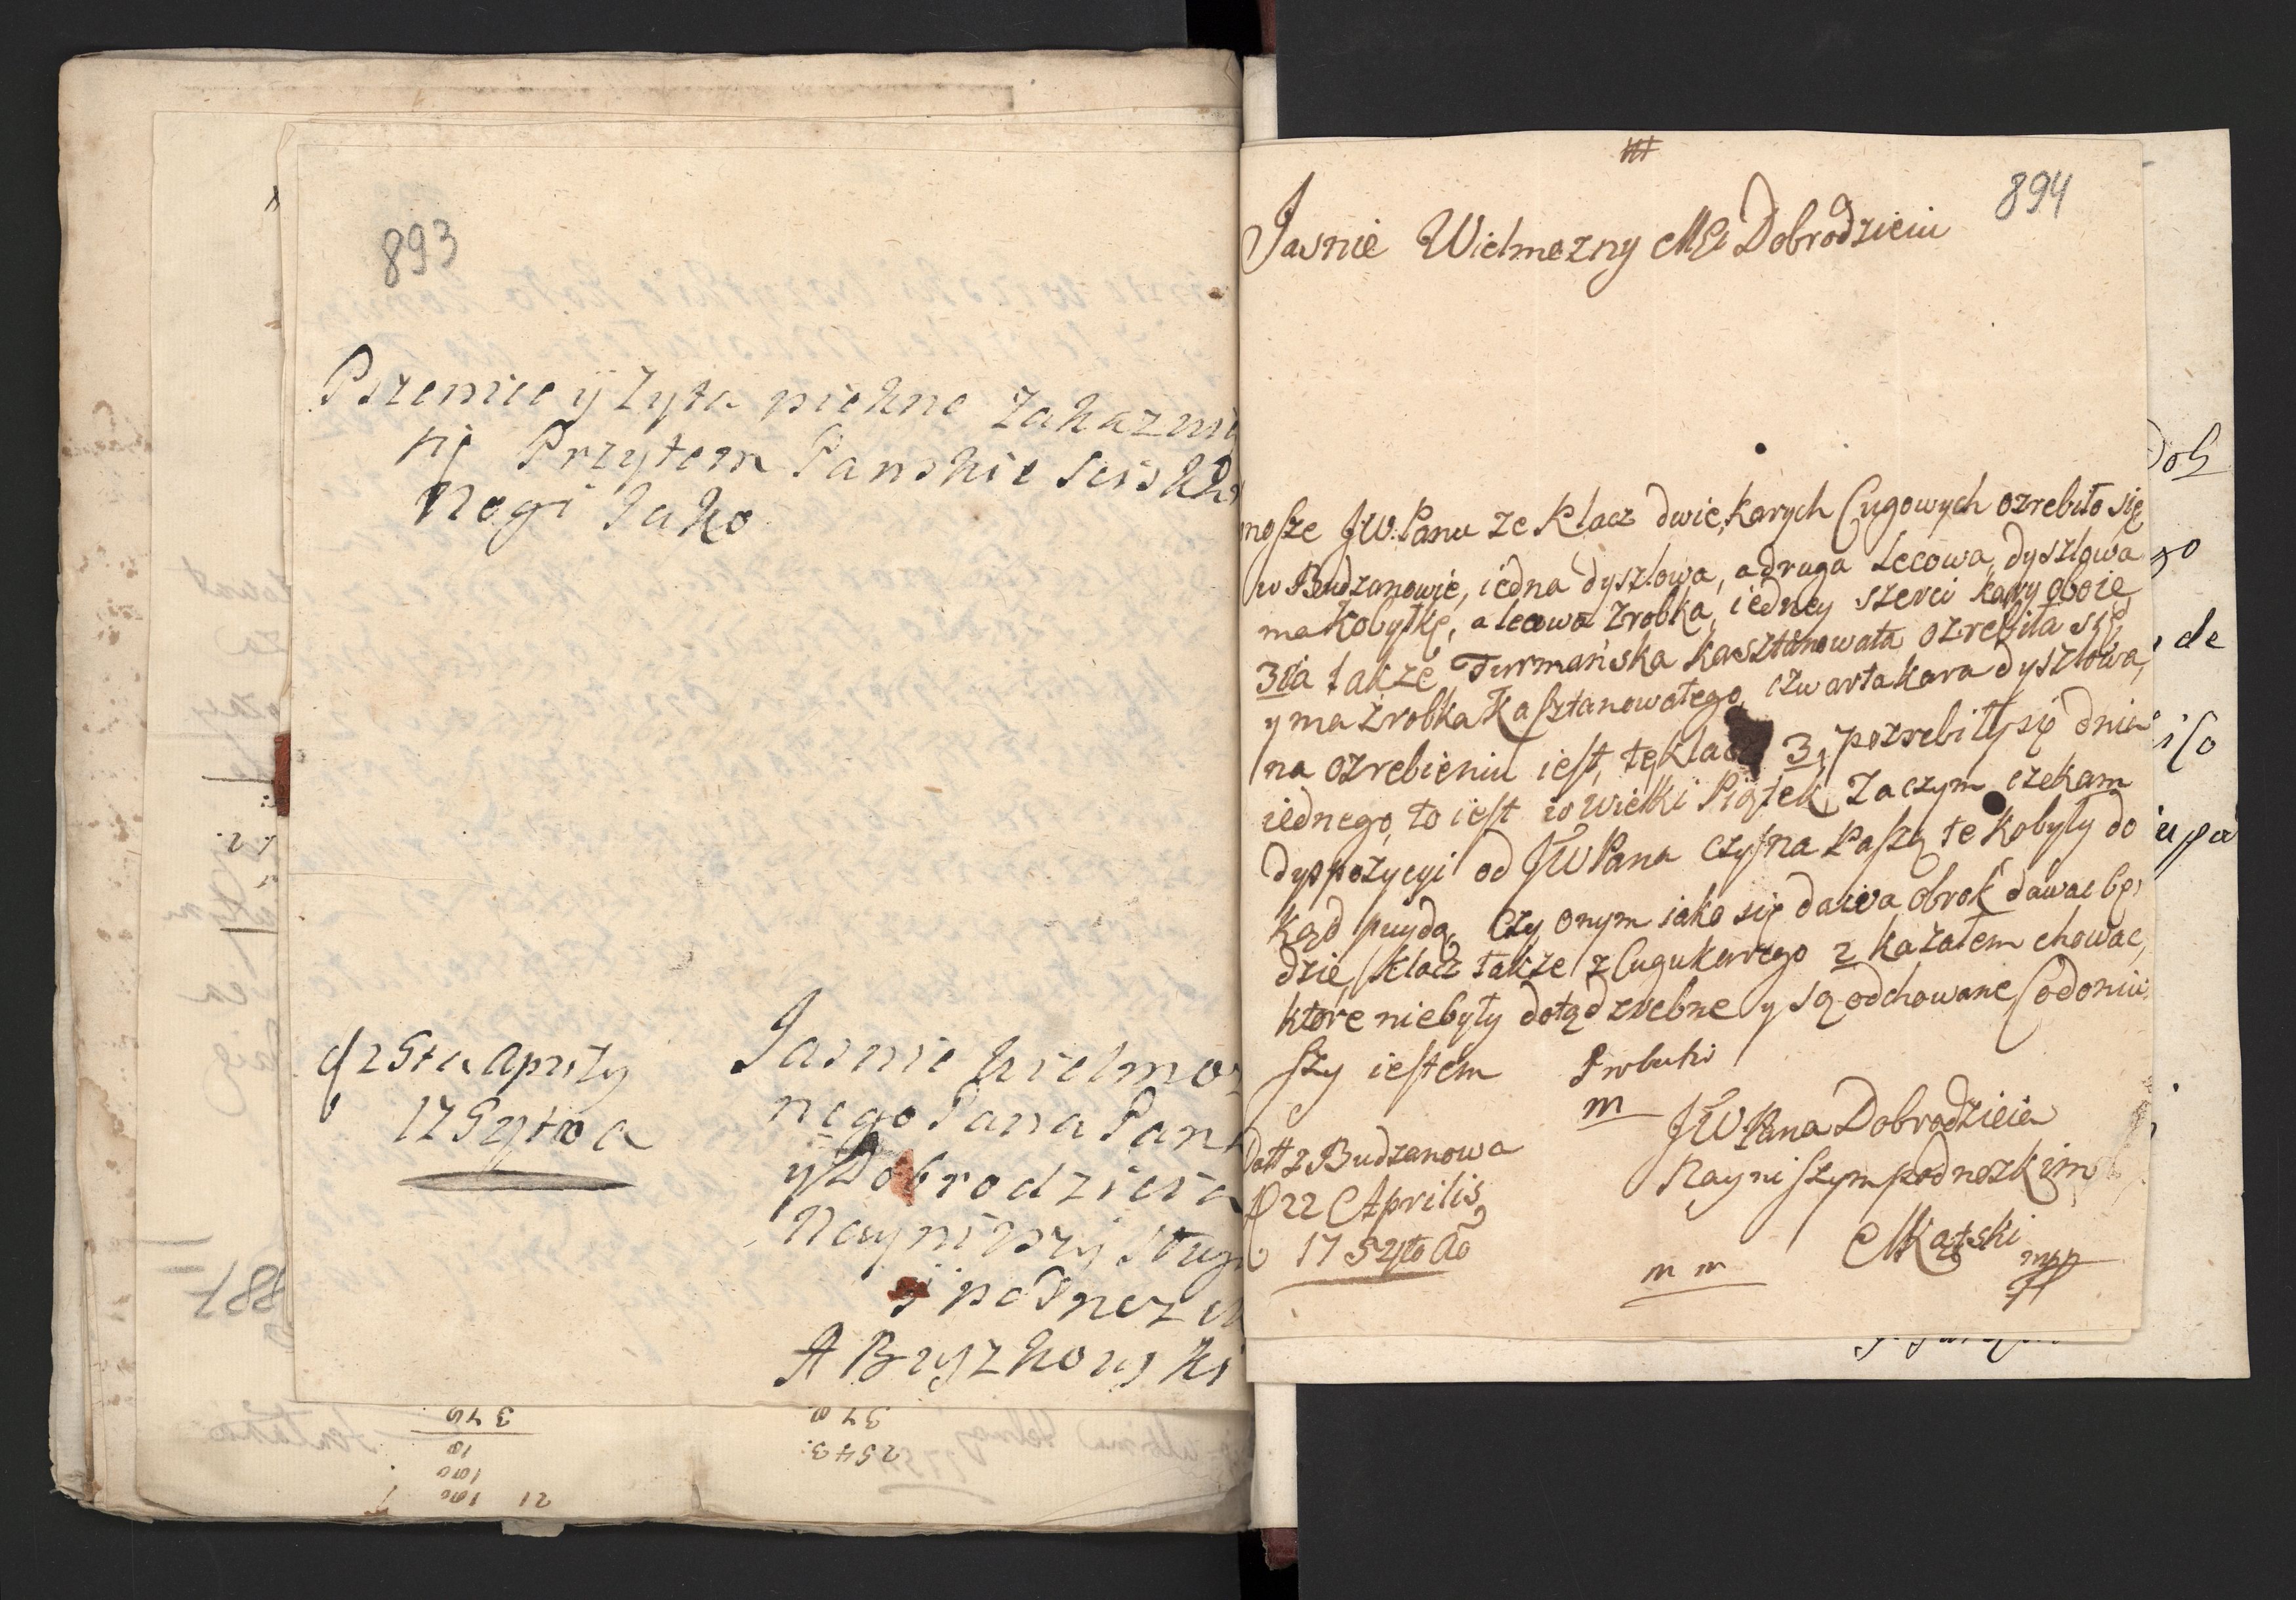 893
Pszenice ÿ Zyta piekne zakazui
ne Przytem Panskie Sciskam
Nogi Jako
d 25ta Aprily
175 zytoa
Jasnie Wielmo
nego Pana Pana
ÿ Dobrodzieia
Nayniszy Sług
ÿ podnoz
A Bryzkowski
887
376
10
100
100
21
370
2543
894
Jasnie Wielmozny MCi Dobrodzieiu
nosze JW. Panu ze Klacz dwie, karych Cugowych ozrebiło się
w Budzanowie, iedna dyszlowa, a druga Lecowa, dyszlowa
ma Kobyłkę, a lecowa Zrobka, iedney szerci kary oboie,
3cia takze Furmańska kasztanowata ozrebiła się
y ma zrobka Kasztanowatego, czwarta kara dyszlowa,
na ozrebieniu iest, te Klacz 3, pozrebiły się dnia
iednego, to iest w Wielki Piątek, Zaczym czekam
dyspozycyi od JW Pana czy na Paszą te Kobyły do
kąd puydą, Czy onym iako się dawa obrok dawac bę,
dzie, Klacz takze z Cugu karego 2 kazałem chowac,
ktore niebyły dotąd zrebne y są odchowane, Co doniu
szy iestem
m
JW Pana Dobrodzieia
Nayniszym podnozkim
MKątski
mpp
Datt z Budzanowa
D 22 Aprilis
175zyto Ao
m m
Dob
go
de